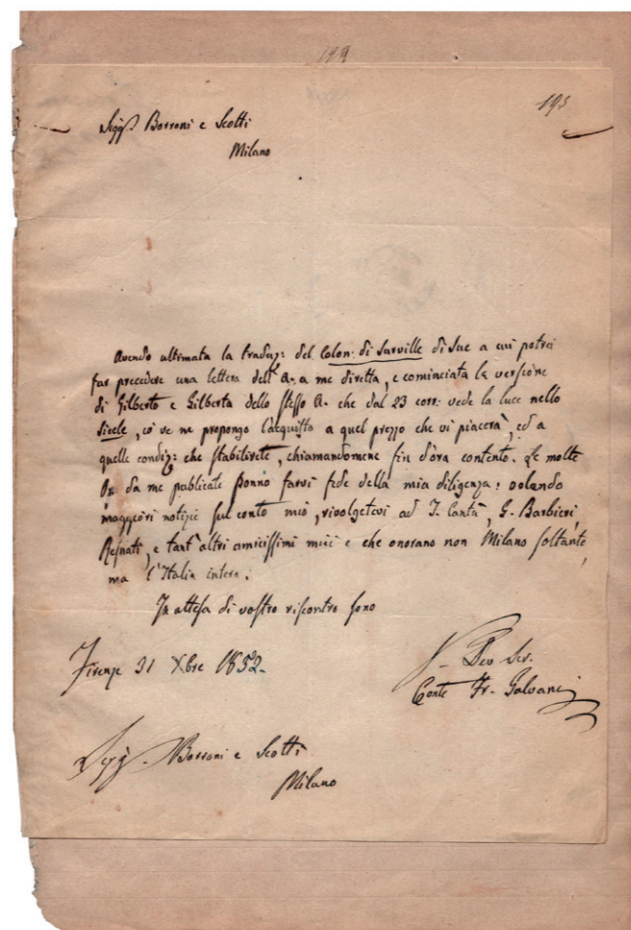 199
195
Sigg. Borroni e Scotti
Milano
Avendo ultimata la traduz: del Colon: di Surville di Sue a cui potrei
far precedere una lettera dell'A. a me diretta, e cominciata la versione
di Gilberto e Gilberta dello stesso A. che dal 23 corr: vede la luce nello
Siecle, io ve ne propongo l'acquisto a quel prezzo che vi piacerà, ed a
quelle condiz: che stabilirete, chiamandomene fin d'ora contento. Le molte
da me publicate ponno farvi fede della mia diligenza: volendo
maggiori notizie sul conto mio, rivolgetevi ad I. Cantù, G. Barbieri,
e tant'altri amicissimi miei e che onorano non Milano soltanto,
ma l'Italia intera.
In attesa di vostro riscontro sono
Firenze 31 Xbre 1852.
Dev Ser.
Conte Fr. Galvani
Sigg. Borroni e Scotti
Milano